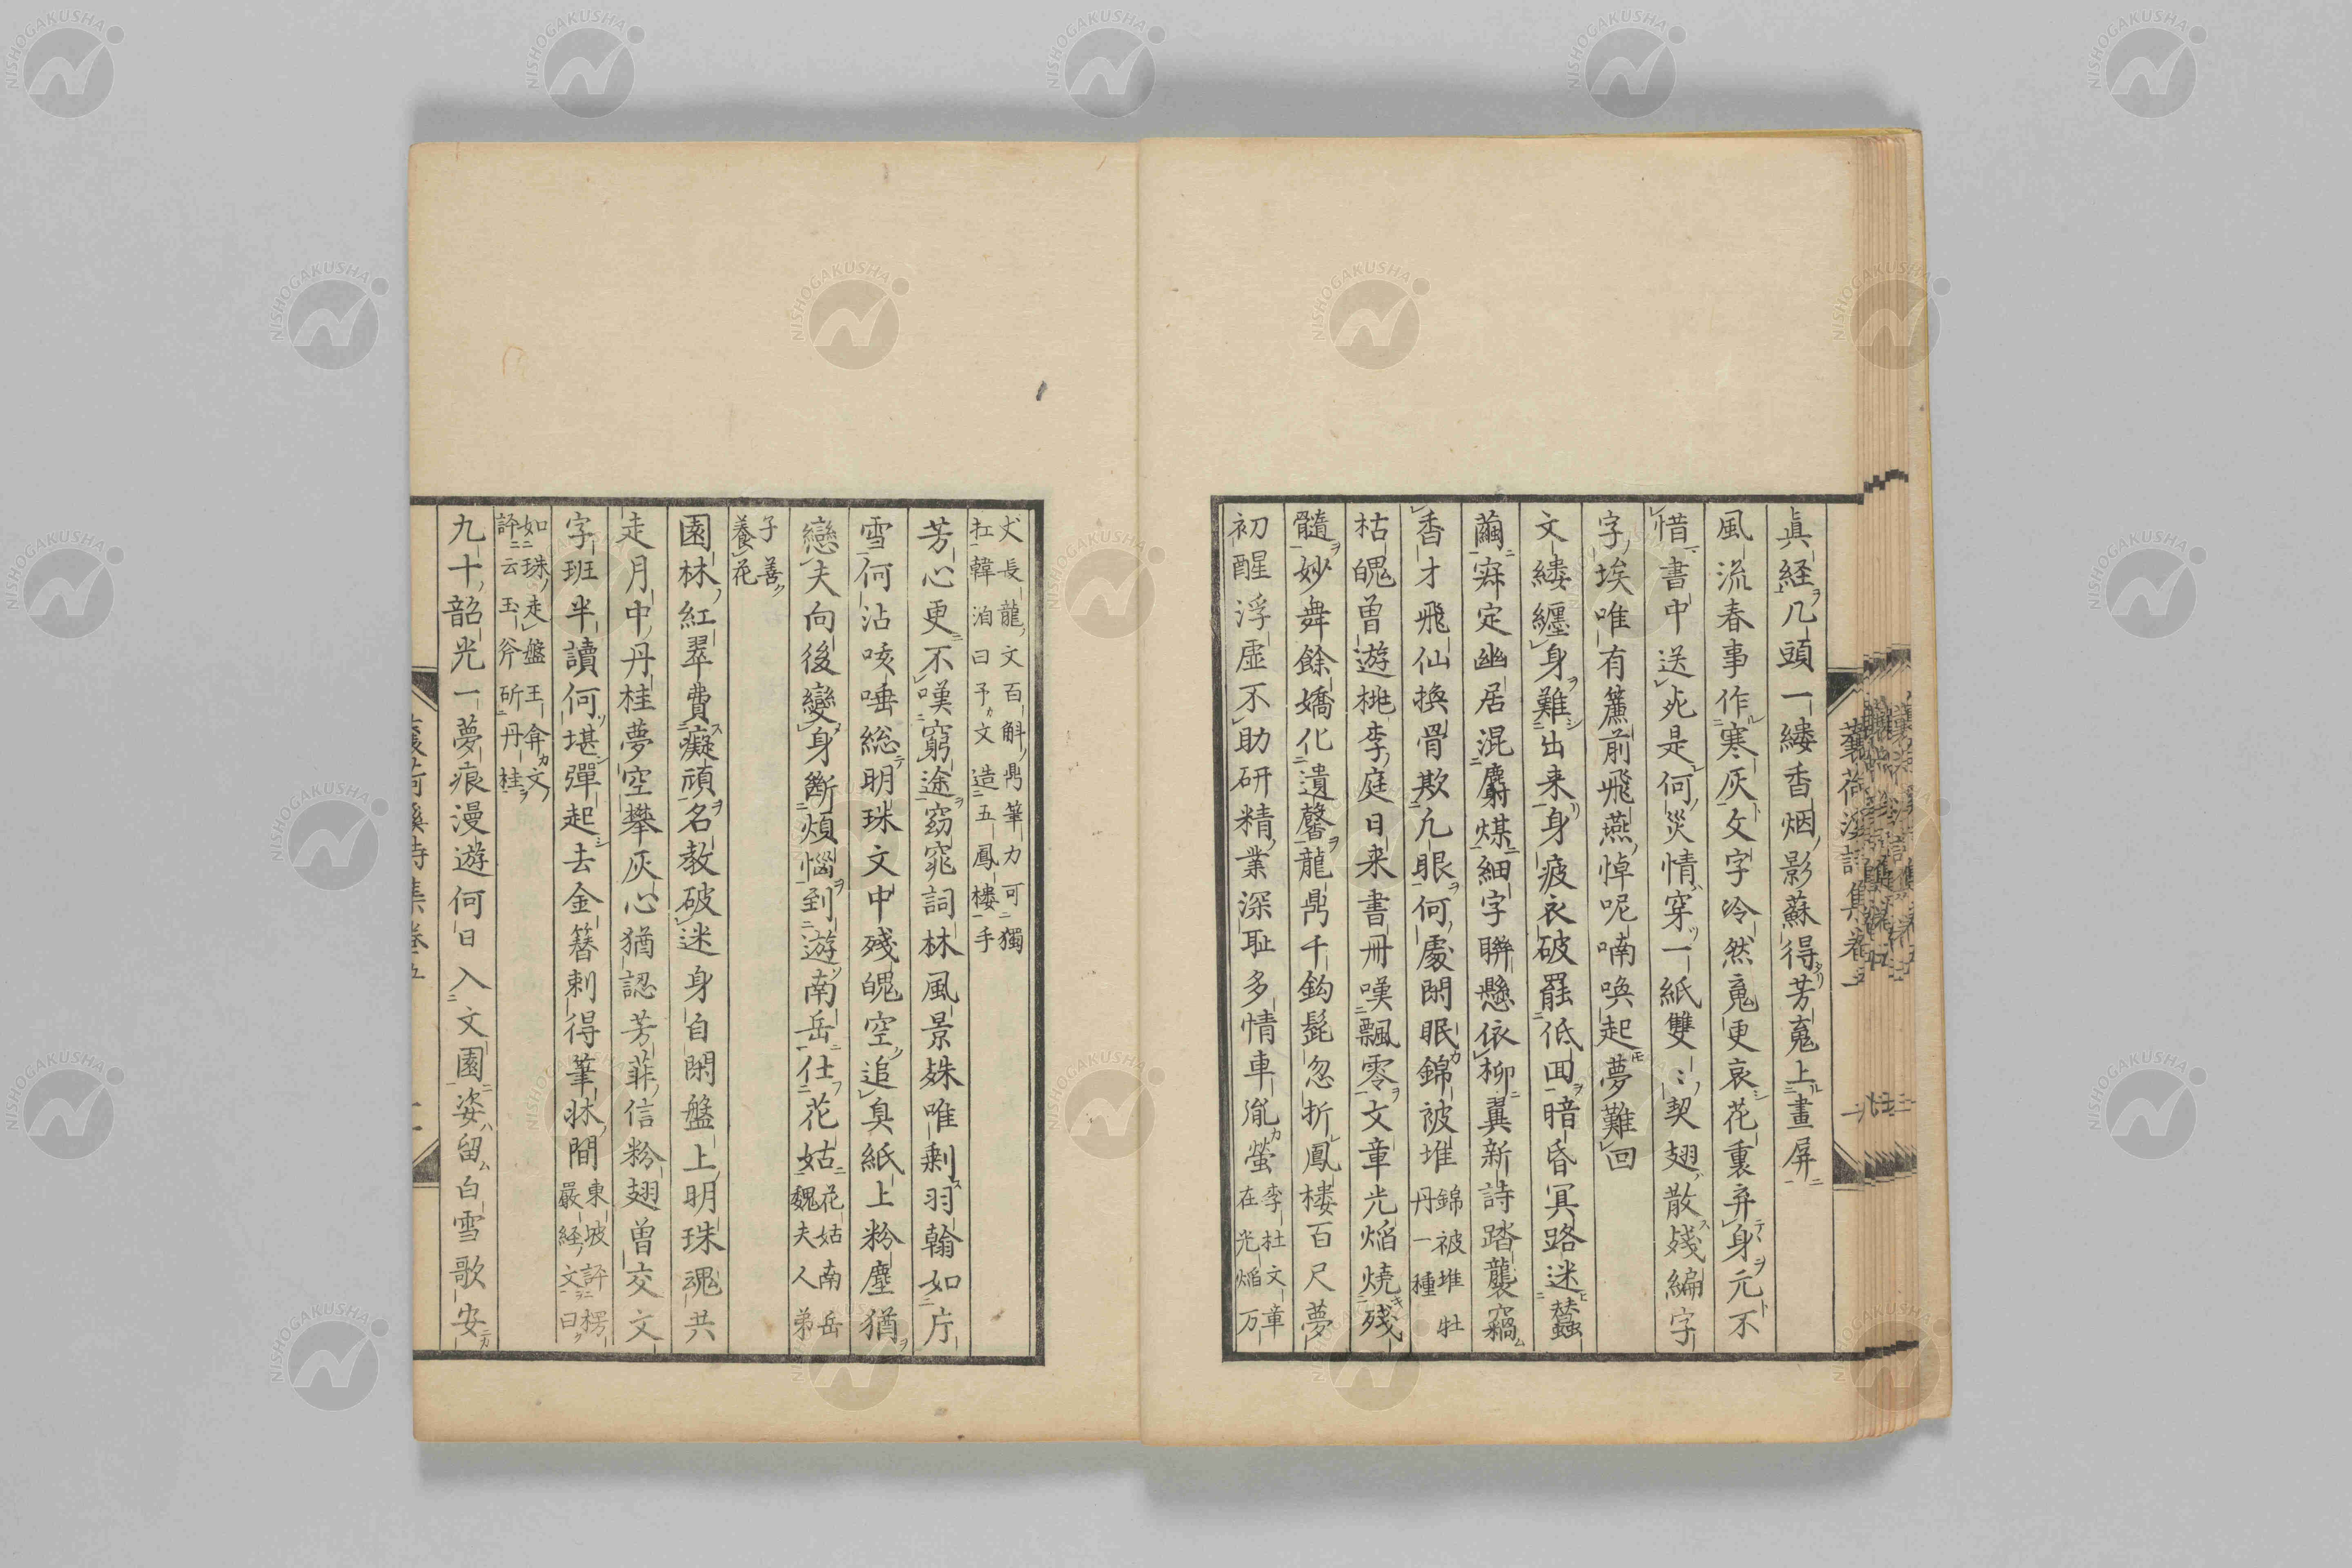 眞経几頭一縷香烟影蘇得芳䰟上畫屏
風流春事作寒灰文字冷然䰟更哀花裏弃身元不
惜書中送死是何災情穿一紙雙〻契翅散殘編字
字埃唯有簾前飛燕悼呢喃喚起夢難回
文縷纏身難出来身疲衣破罷低回暗昏冥路迷蠶
繭寂定幽居混麝煤細字聯懸依柳翼新詩踏襲竊
香才飛仙換骨欺凡眼何處閑眠錦被堆錦被堆牡
丹一種
枯魄曽遊桃李庭日来書冊嘆飄零文章光焔焼殘
髓妙舞餘嬌化遺馨龍鼎千鈞髭忽折鳳樓百尺夢
初醒浮虛不助研精業深恥多情車胤螢李杜文章
在光焔万
丈長龍文百斛鼎筆力可獨
扛韓洎曰予文造五鳳樓手
芳心更不嘆窮途窈窕詞林風景姝唯剰羽翰如片
雪何沾咳唾総明珠文中殘魄空追臭紙上粉塵猶
戀夫向後變身斷煩惱到遊南岳仕花姑花姑南岳
魏夫人弟
子善
養花
園林紅翠費癡頑名教破迷身自閑盤上明珠魂共
走月中丹桂夢空攀灰心猶認芳菲信粉翅曽交文
字班半讀何堪彈起去金簪刺得筆牀間東坡評楞
嚴経文曰
如珠走盤王弇文
評云玉斧斫丹桂
九十韶光一夢痕漫遊何日入文園姿留白雪歌安
NISHOGAKUSHA